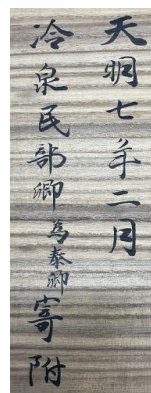 天明七年二月
冷泉民部卿為泰卿寄附